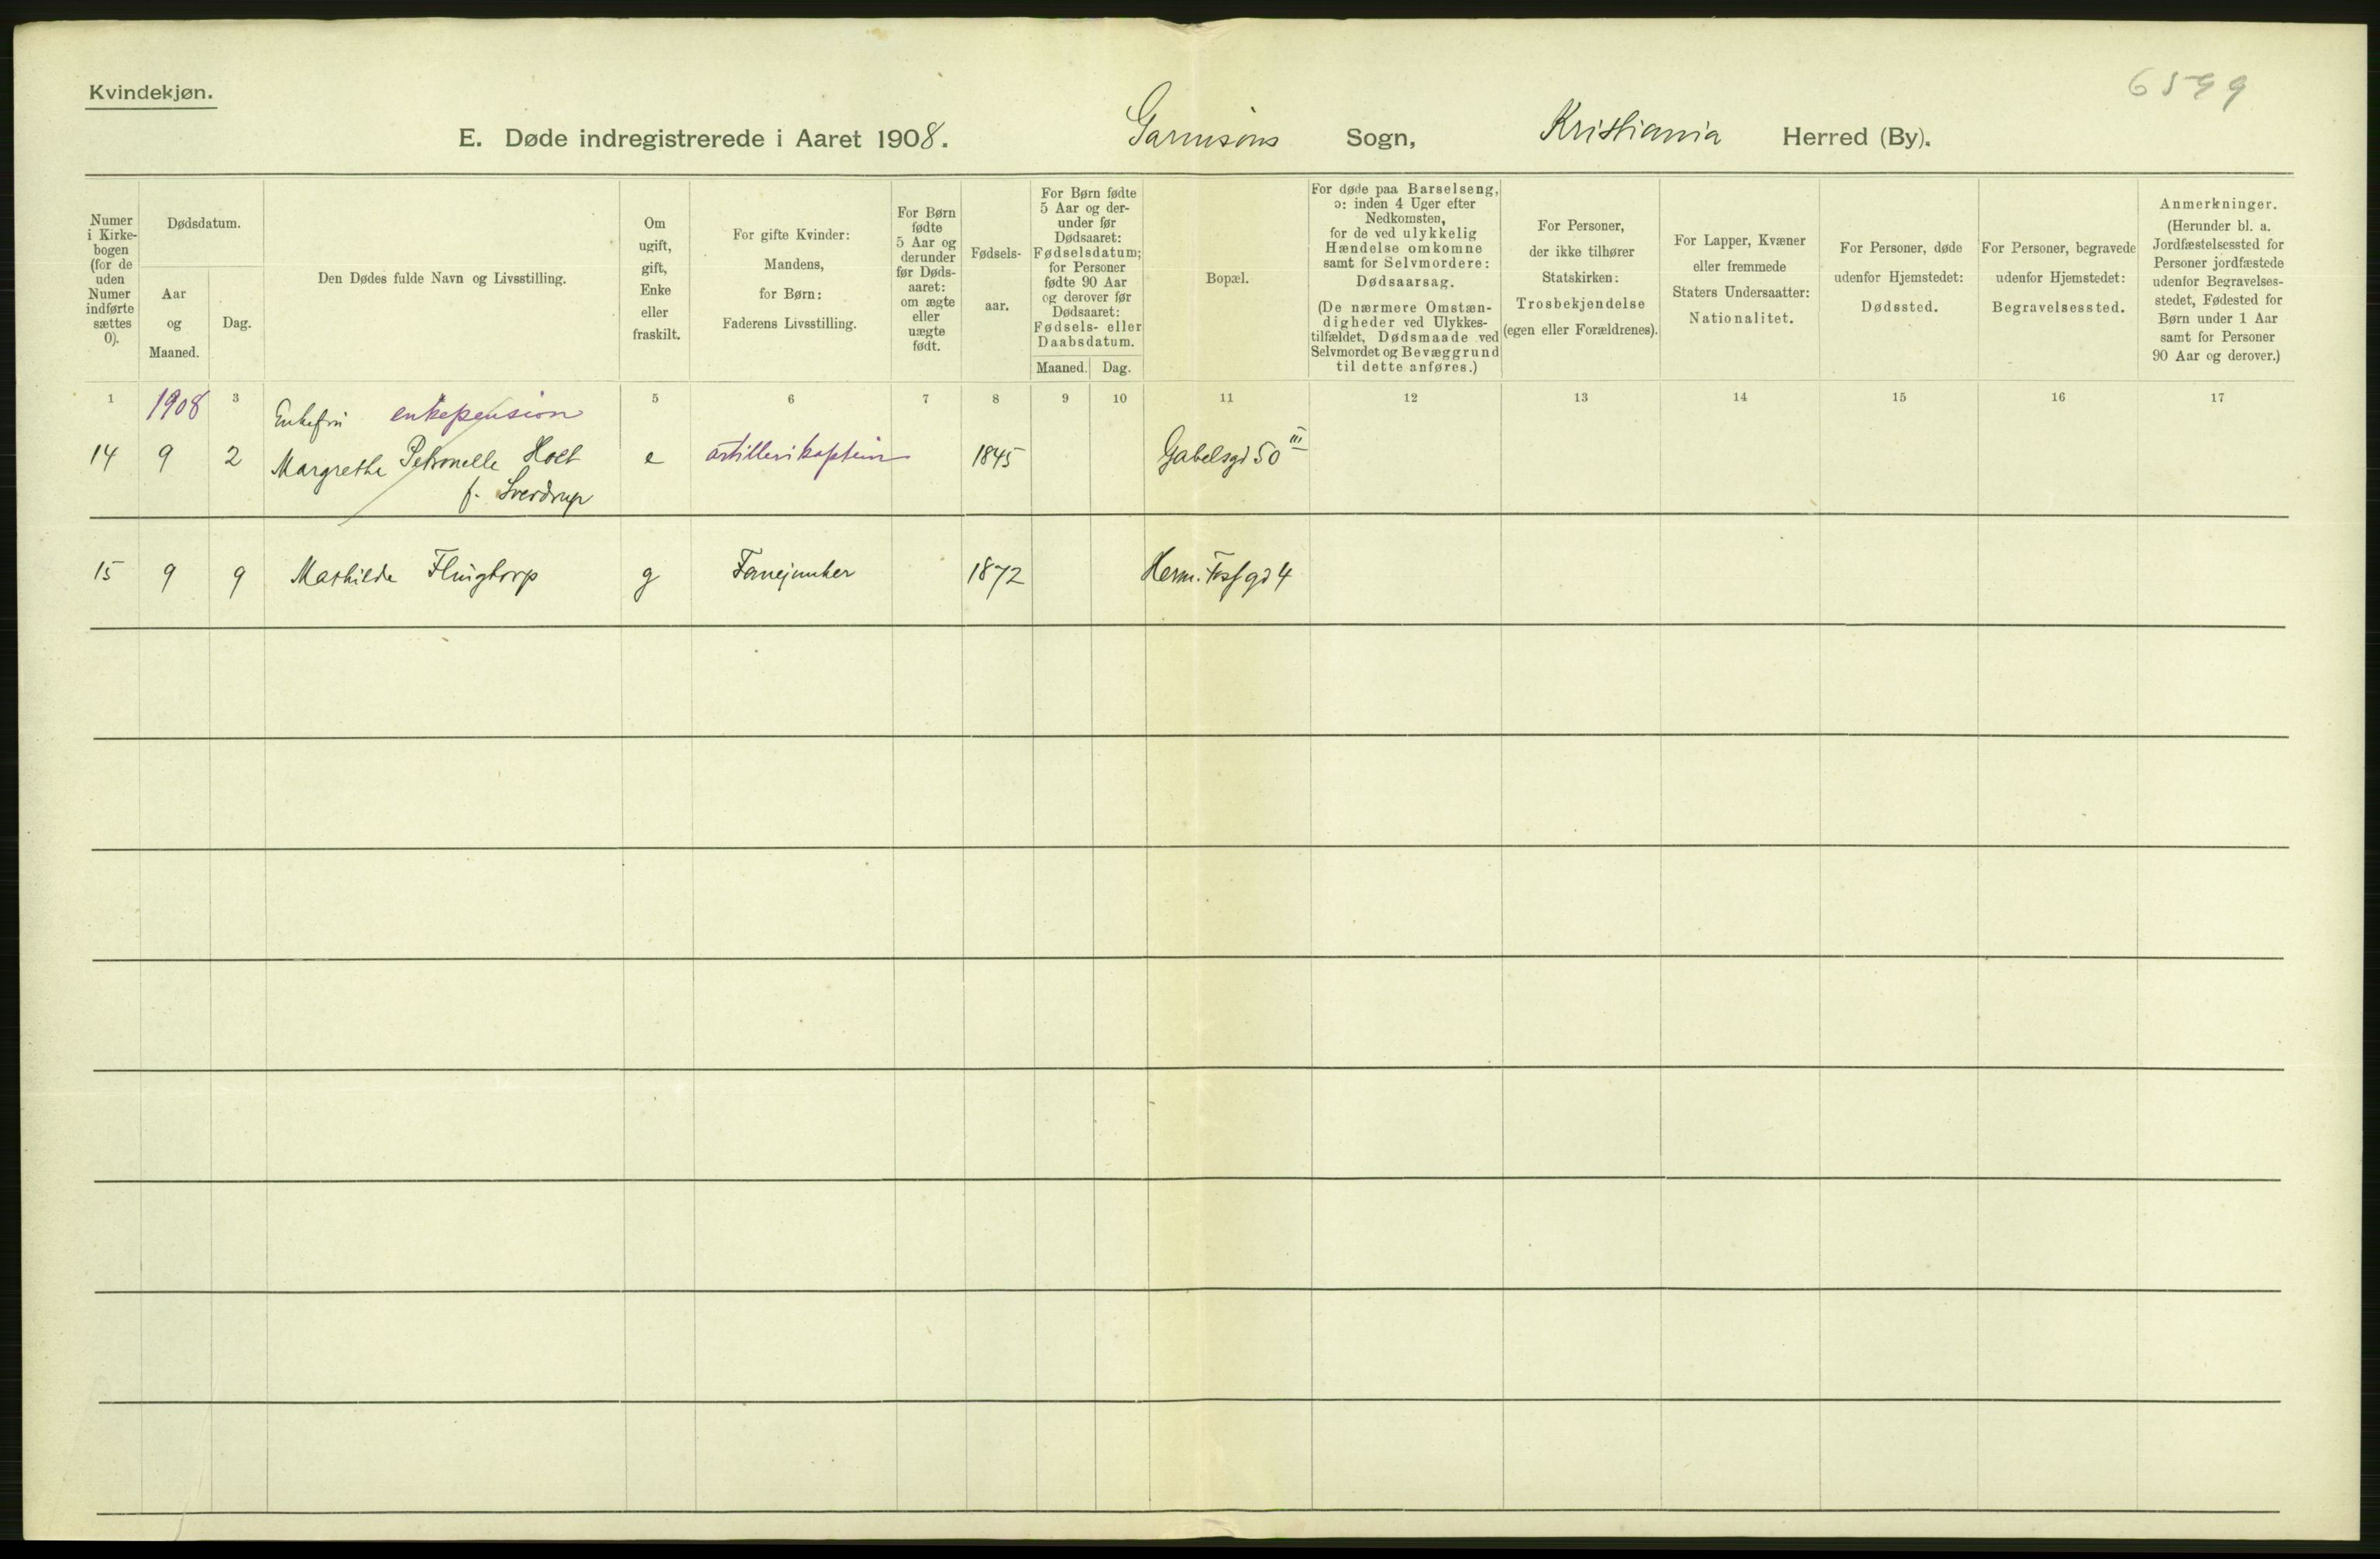 Kvindekjøn.
6599
E. Døde indregistrerede i Aaret 1908. Garnisons Sogn, Kristiania Herred (By).
Numer i Kirke-bogen (for de uden Numer indførte sættes 0).
Dødsdatum.
Aar og Maaned.
Dag.
Den Dødes fulde Navn og Livsstilling.
Om ugift, gift, Enke eller fraskilt.
For gifte Kvinder: Mandens, for Børn: Faderens Livsstilling.
For Børn fødte 5 Aar og derunder før Døds-aaret: om ægte eller uægte født.
Fødsels-aar.
For Børn fødte 5 Aar og der-under før Dødsaaret: Fødselsdatum; for Personer fødte 90 Aar og derover før Dødsaaret: Fødsels- eller Daabsdatum.
Maaned. Dag.
Bopæl.
For døde paa Barselseng, ɔ: inden 4 Uger efter Nedkomsten, for de ved ulykkelig Hændelse omkomne samt for Selvmordere: Dødsaarsag. (De nærmere Omstæn-digheder ved Ulykkes-tilfældet, Dødsmaade ved Selvmordet og Bevæggrund til dette anføres.)
For Personer, der ikke tilhører Statskirken: Trosbekjendelse (egen eller Forældrenes).
For Lapper, Kvæner eller fremmede Staters Undersaatter: Nationalitet.
For Personer, døde udenfor Hjemstedet: Dødssted.
For Personer, begravede udenfor Hjemstedet: Begravelsessted.
Anmerkninger. (Herunder bl. a. Jordfæstelsessted for Personer jordfæstede udenfor Begravelses-stedet, Fødested for Børn under 1 Aar samt for Personer 90 Aar og derover.)
1 1908 3 5 6 7 8 9 10 11 12 13 14 15 16 17
Enkefru enkepension
14 9 2 Margrethe Petronelle Holt e artillerikaptein 1845 Gabelsgd 50 III
f. Sverdrup
15 9 9 Mathilde Flugtorp g Fanejunker 1872 Herm. Fossgd 4